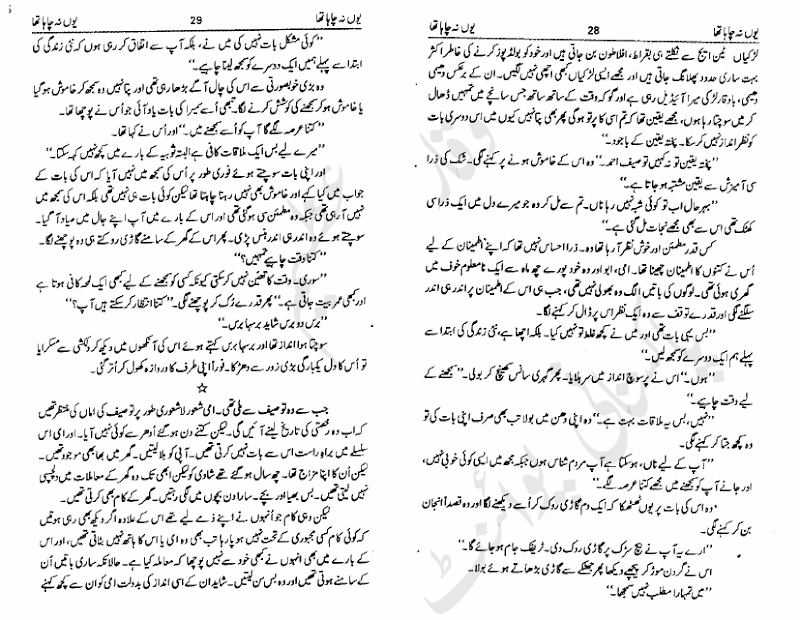 یوں نہ چاہا تھا 28 یوں نہ چاہا تھا
لڑکیاں ٹین ایج سے نکلتے ہی بقراط، افلاطون بن جاتی ہیں اور خود کو بولڈ پوز کرنے کی خاطر اکثر
بہت ساری حدود پھلانگ جاتی ہیں اور مجھے ایسی لڑکیاں کبھی اچھی نہیں لگیں۔ ان کے برعکس دھیمی
دھیمی، باوقار لڑکی میرا آئیڈیل رہی ہے اور گو کہ وقت کے ساتھ ساتھ جس سانچے میں تمہیں ڈھال
کر میں سوچتا رہا ہوں، مجھے یقین تھا کہ تم اسی کا پرتو ہو گی پھر بھی پتا نہیں کیوں میں اس دوسری بات
کو نظر انداز نہیں کر سکا۔ پختہ یقین کے باوجود۔“
”پختہ یقین تو نہ کہیں توصیف احمد۔“ وہ اس کے خاموش ہونے پر کہنے لگی۔ شک کی ذرا
سی آمیزش سے یقین مشتبہ ہو جاتا ہے۔“
”بہرحال اب تو کوئی شبہ نہیں رہا ناں۔ تم سے مل کر وہ جو میرے دل میں ایک ذرا سی
کھٹک تھی اس سے بھی مجھے نجات مل گئی ہے۔“
کس قدر مطمئن اور خوش نظر آ رہا تھا وہ۔ ذرا احساس نہیں تھا کہ اپنے اطمینان کے لیے
اس نے کتنوں کا اطمینان چھینا تھا۔ امی، ابو اور وہ خود پورے چھ ماہ سے ایک نامعلوم خوف میں
گھری ہوئی تھی۔ لوگوں کی باتیں الگ وہ بھولی نہیں تھی، جب ہی اس کے اطمینان پر اندر ہی اندر
سلگنے لگی اور قدرے توقف سے وہ ایک نظر اس پر ڈال کر کہنے لگا۔
”بس یہی بات تھی اور میں نے کچھ غلط تو نہیں کیا۔ بلکہ اچھا ہے، نئی زندگی کی ابتدا سے
پہلے ہم ایک دوسرے کو سمجھ لیں۔“
”ہوں۔“ اس نے پرسوچ انداز میں سر ہلایا۔ پھر گہری سانس کھینچ کر بولی۔ ”سمجھنے کے
لیے وقت چاہیے۔“
”نہیں، بس یہ ملاقات بہت ہے۔“ وہ اپنی دھن میں بولا تب بھی صرف اپنی بات کی تو
وہ کچھ جتا کر کہنے لگی۔
”آپ کے لیے ناں، ہو سکتا ہے آپ مردم شناس ہوں جبکہ مجھ میں ایسی کوئی خوبی نہیں،
اور جانے آپ کو سمجھنے میں مجھے کتنا عرصہ لگے۔“
وہ اس کی بات پر یوں ٹھٹکا کہ ایک دم گاڑی روک کر اسے دیکھنے لگا اور وہ قصداً انجان
بن کر کہنے لگی۔
”ارے یہ آپ نے بیچ سڑک پر گاڑی روک دی۔ ٹریفک جام ہو جائے گا۔“
اس نے گردن موڑ کر پیچھے دیکھا پھر جھٹکے سے گاڑی بڑھاتے ہوئے بولا۔
”میں تمہارا مطلب نہیں سمجھا۔“
یوں نہ چاہا تھا 29 یوں نہ چاہا تھا
”کوئی مشکل بات نہیں کی میں نے، بلکہ آپ سے اتفاق کر رہی ہوں کہ نئی زندگی کی
ابتدا سے پہلے ہمیں ایک دوسرے کو سمجھ لینا چاہیے۔“
وہ بڑی خوبصورتی سے اس کی چال آگے بڑھا رہی تھی اور پتا نہیں وہ سمجھ کر خاموش ہو گیا
یا خاموش ہو کر سمجھنے کی کوشش کرنے لگا۔ تبھی اُسے سمیرا کی بات یاد آئی جو اُس نے پوچھا تھا۔
”کتنا عرصہ لگے گا آپ کو اُسے سمجھنے میں۔“ اور اُس نے کہا تھا۔
”میرے لیے بس ایک ملاقات کافی ہے البتہ ثوبیہ کے بارے میں کچھ نہیں کہہ سکتا۔“
اور اپنی بات سوچتے ہوئے فوری طور پر اُس کی سمجھ میں نہیں آیا کہ اس کی بات کے
جواب میں کیا کہے اور خاموش بھی نہیں رہنا چاہتا تھا لیکن کوئی بات ہی نہیں تھی بلکہ اس کی سمجھ میں
نہیں آ رہی تھی جبکہ وہ مطمئن سی ہو گئی تھی اور اس کے بارے میں آپ اپنے جال میں صیاد آ گیا۔
سوچتے ہوئے وہ اندر ہی اندر ہنس پڑی۔ پھر اس کے گھر کے سامنے گاڑی روکتے ہی وہ پوچھنے لگا۔
”کتنا وقت چاہیے تمہیں؟“
”سوری۔ وقت کا تعین نہیں کر سکتی کیونکہ کسی کو سمجھنے کے لیے کبھی ایک لمحہ کافی ہوتا ہے
اور کبھی عمر بیت جاتی ہے۔“ پھر قدرے رُک کر پوچھنے لگی۔ ”کتنا انتظار کر سکتے ہیں آپ؟“
”برس دو برس شاید برسہا برس۔“
سوچتا ہوا انداز تھا اور برسہا برس کہتے ہوئے اس کی آنکھوں میں دیکھ کر دلکشی سے مسکرایا
تو اُس کا دل یکبارگی بڑی زور سے دھڑکا۔ فوراً اپنی طرف کا دروازہ کھول کر اُتر گئی۔
☆
جب سے وہ توصیف سے ملی تھی۔ امی شعور لاشعوری طور پر توصیف کی اماں کی منتظر تھیں
کہ اب وہ رخصتی کی تاریخ لینے آئیں گی۔ لیکن کتنے دن ہو گئے اُدھر سے کوئی نہیں آیا۔ اور امی اس
سلسلے میں براہِ راست اس سے بات نہیں کرتی تھیں۔ آپی کو بلا لیتیں۔ گھر میں بھابی موجود تھیں۔
لیکن اُن کا اپنا مزاج تھا۔ چھ سال ہو گئے تھے شادی کو لیکن ابھی تک وہ گھر کے معاملات میں دلچسپی
نہیں لیتی تھیں۔ بس بھیا اور بچے۔ سارا دن بچوں میں لگی رہتیں۔ گھر کے کام بھی کرتی تھیں۔
لیکن وہی کام جو اُنہوں نے اپنے ذمے لیے تھے اس کے علاوہ اگر دیکھ بھی رہی ہوتیں
کہ کوئی کام کسی مجبوری کے تحت نہیں ہو پا رہا تب بھی وہ امی یا اس کا ہاتھ نہیں بٹاتی تھیں، اور اس
کے بارے میں بھی انہوں نے کبھی خود سے نہیں پوچھا کہ معاملہ کیا ہے۔ حالانکہ ساری باتیں اُن
کے سامنے ہوتی تھیں اور وہ بس سن لیتیں۔ شاید ان کے اسی انداز کی بدولت امی کو ان سے کچھ کہنے